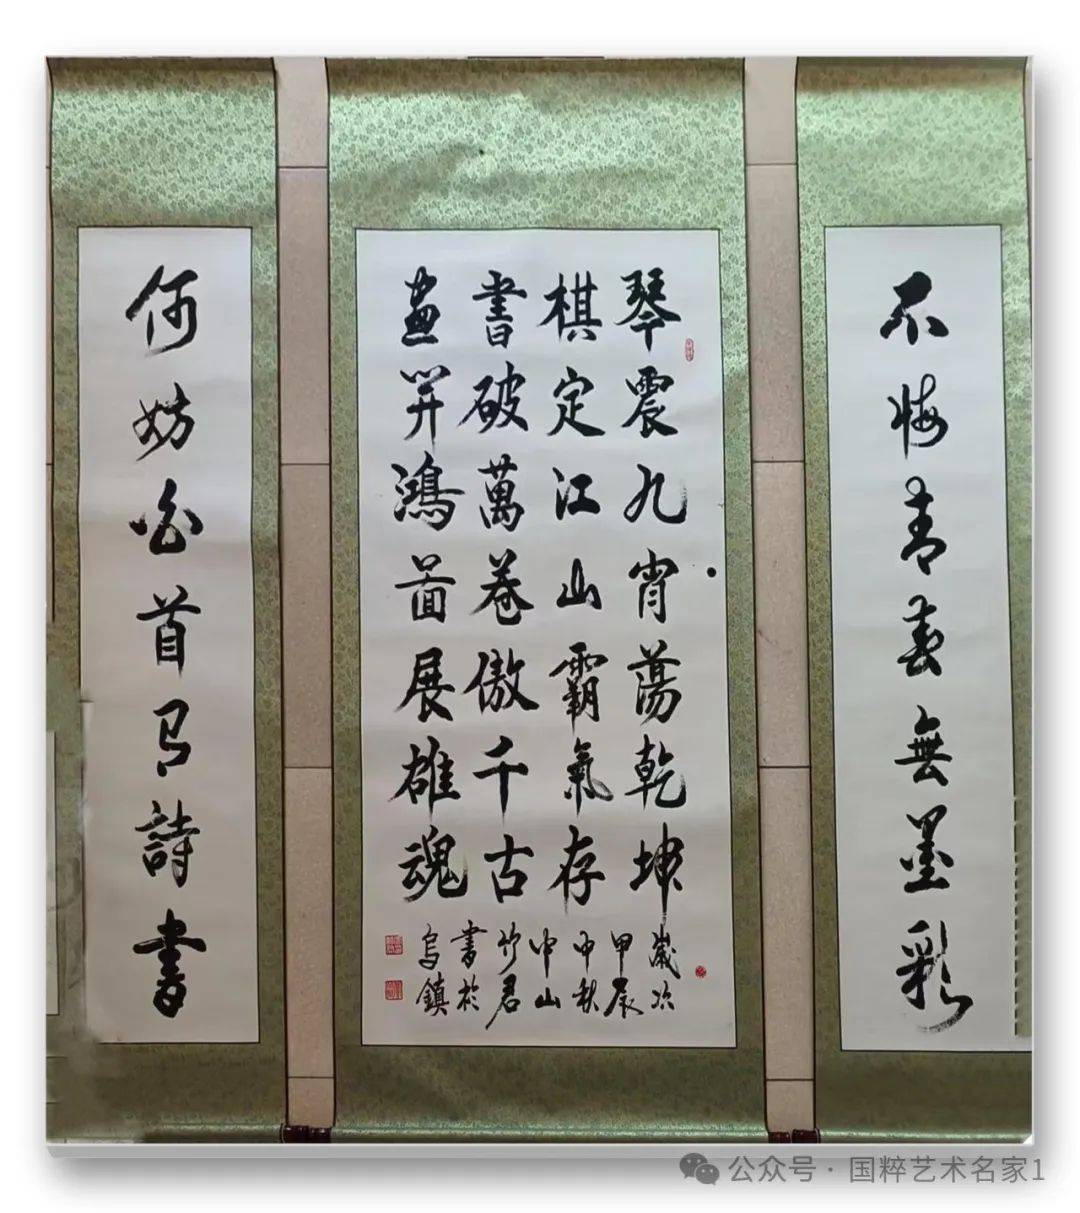 不悔青春無墨彩
琴震九宵蕩乾坤
棋定江山霸氣存
書破萬卷傲千古
畫开鴻啚展雄魂
歲次
甲辰
中秋
中山
竹君
書於
烏鎮
何妨白首有詩書
公众号 · 国粹艺术名家1